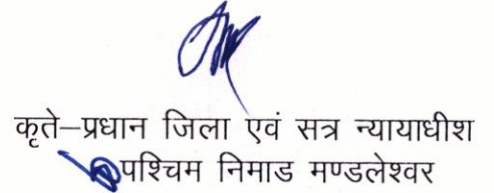 कृते–प्रधान जिला एवं सत्र न्यायाधीश
पश्चिम निमाड मण्डलेश्वर